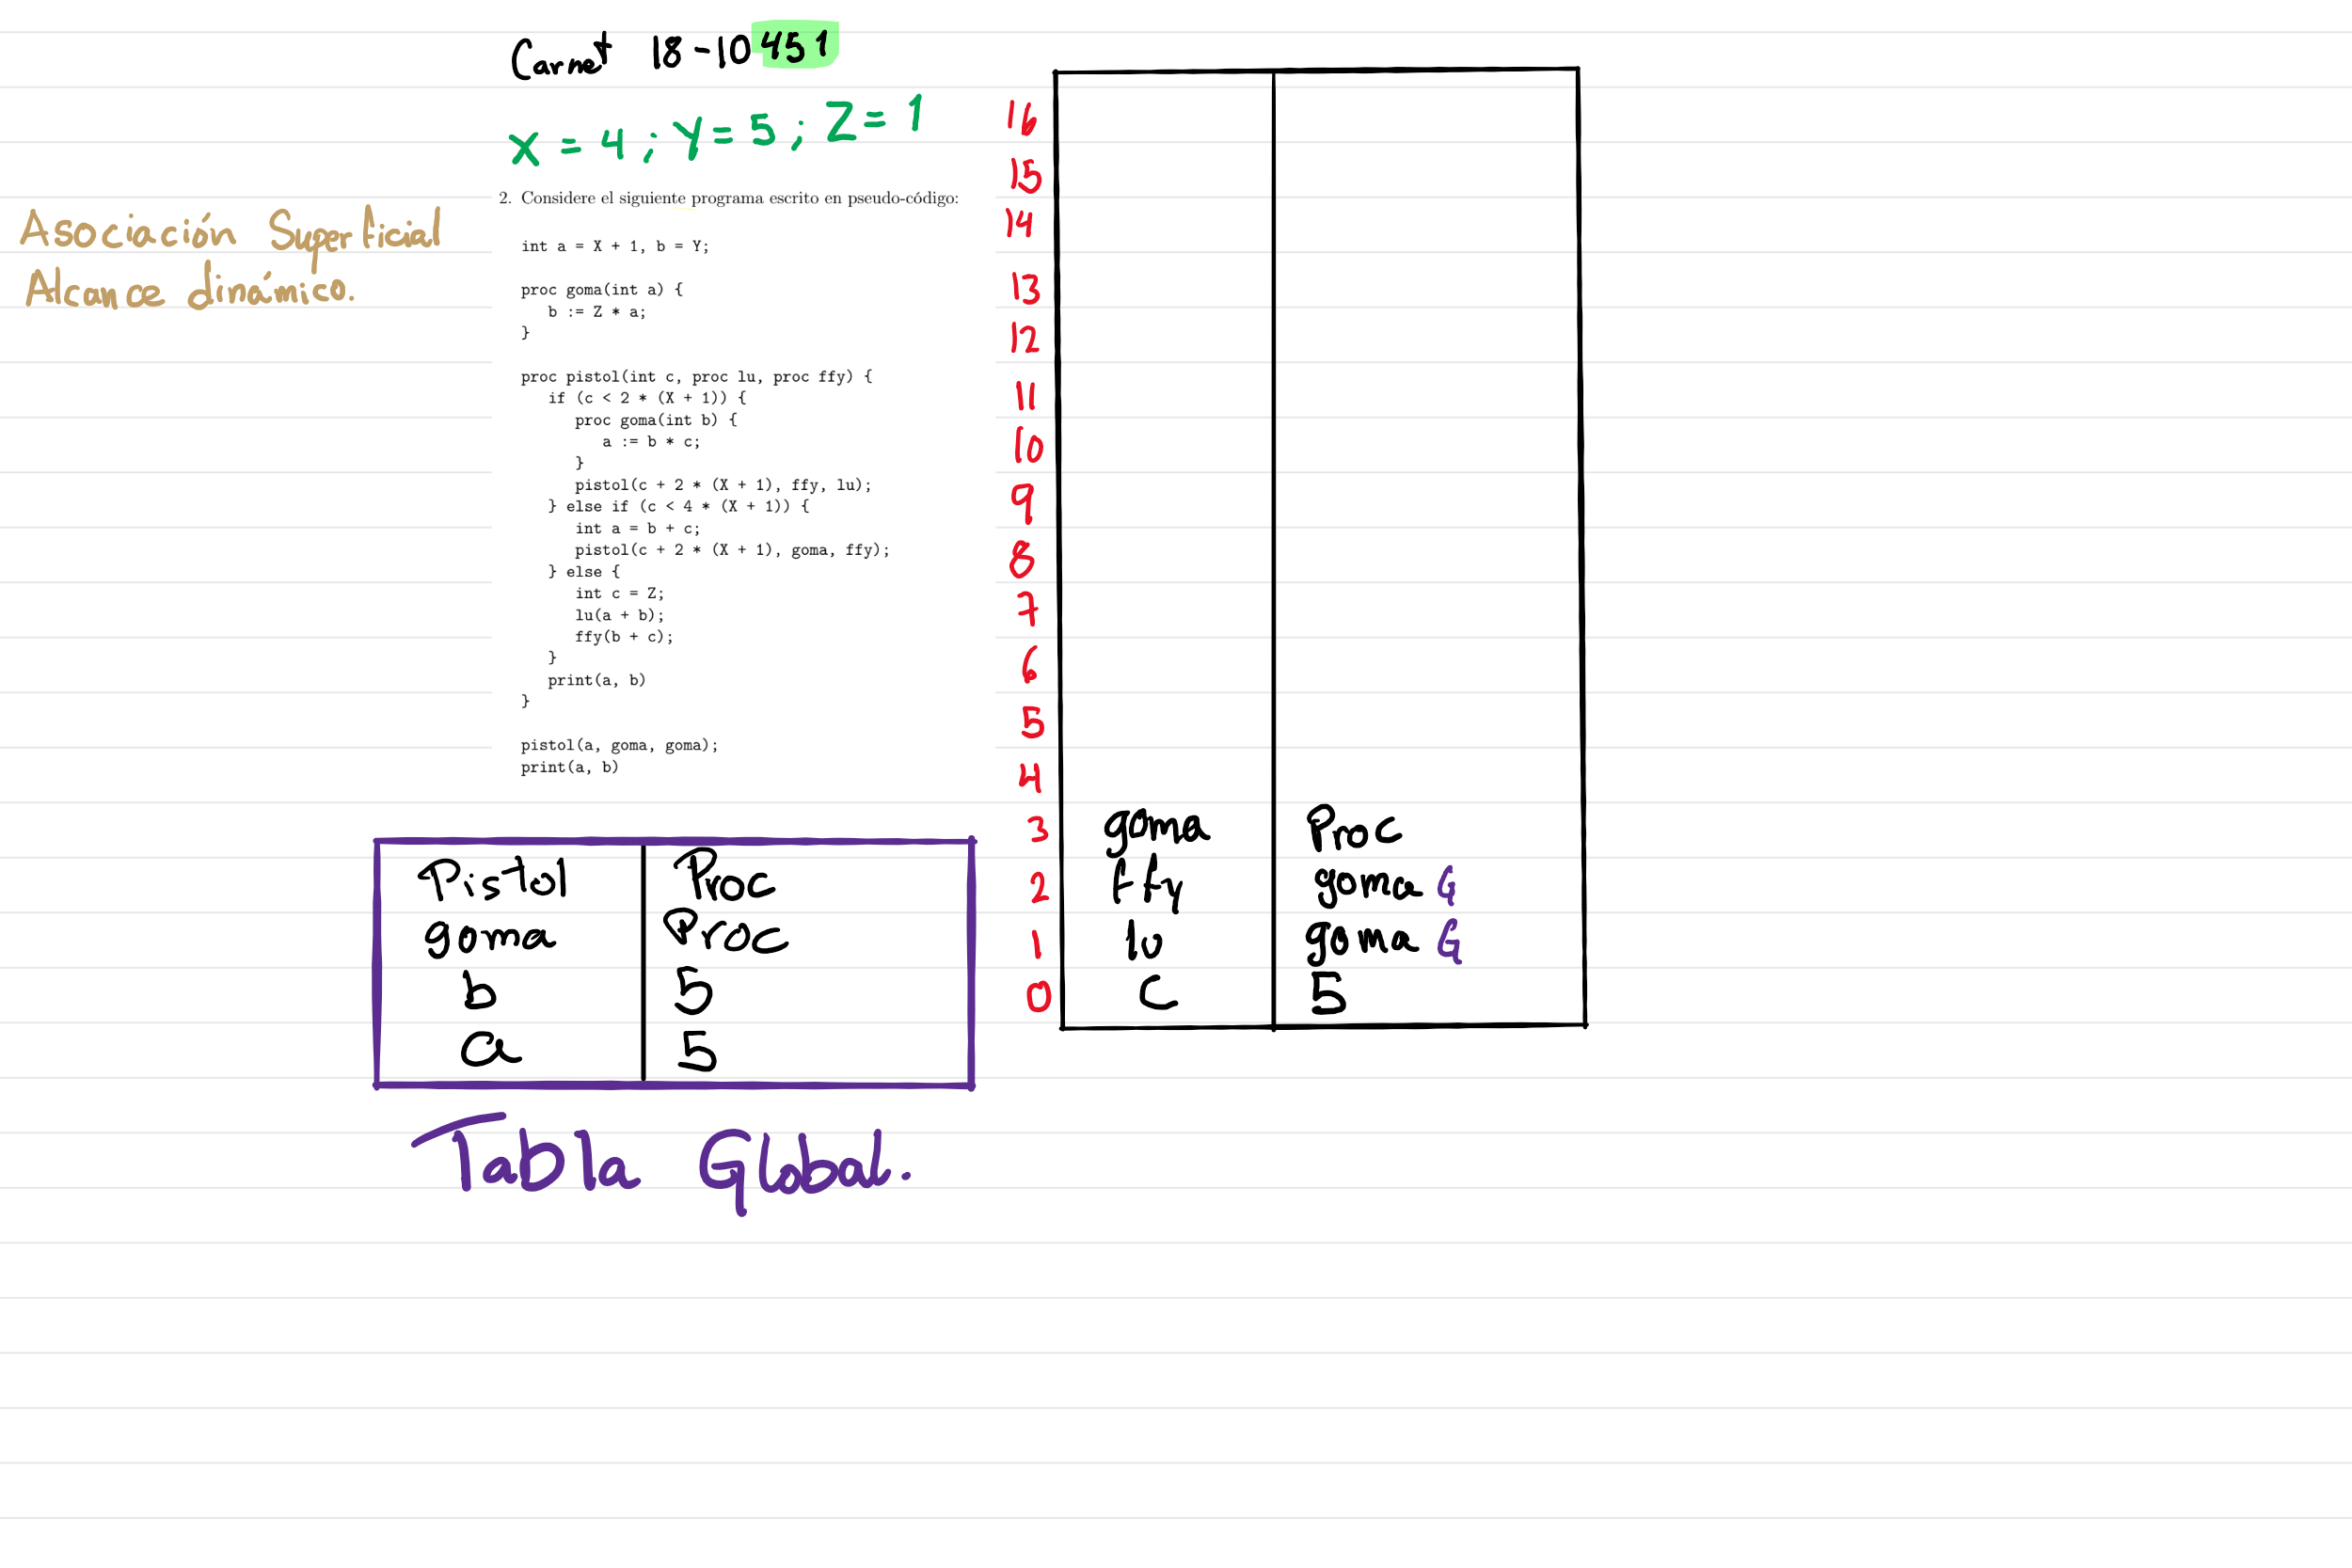 Carnet 18-10451
X = 4 ; Y = 5 ; Z = 1
Asociación Superficial
Alcance dinámico.
2. Considere el siguiente programa escrito en pseudo-código:
int a = X + 1, b = Y;
proc goma(int a) {
b := Z * a;
}
proc pistol(int c, proc lu, proc ffy) {
if (c < 2 * (X + 1)) {
proc goma(int b) {
a := b * c;
}
pistol(c + 2 * (X + 1), ffy, lu);
} else if (c < 4 * (X + 1)) {
int a = b + c;
pistol(c + 2 * (X + 1), goma, ffy);
} else {
int c = Z;
lu(a + b);
ffy(b + c);
}
print(a, b)
}
pistol(a, goma, goma);
print(a, b)
16
15
14
13
12
11
10
9
8
7
6
5
4
3 goma Proc
2 ffy goma G
1 lu goma G
0 C 5
Pistol Proc
goma Proc
b 5
a 5
Tabla Global.